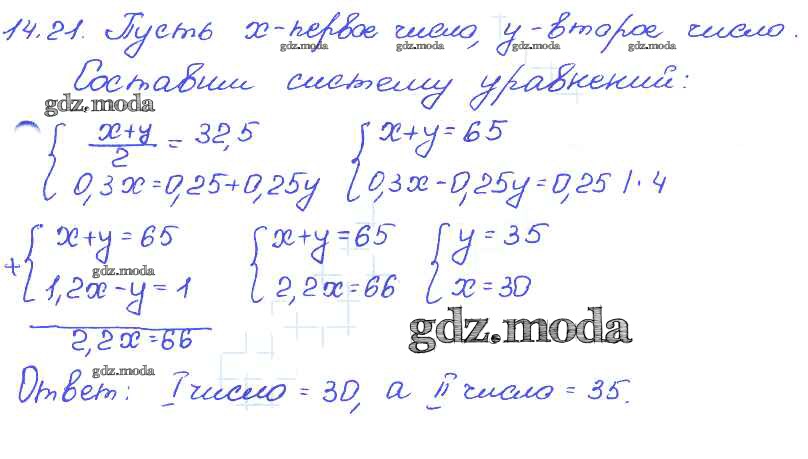 14.21. Пусть x-первое число, y-второе число.
gdz.moda gdz.moda gdz.moda gdz.moda
Составим систему уравнений:
gdz.moda
{ (x+y)/2 = 32,5 { x+y=65
{ 0,3x=0,25+0,25y { 0,3x-0,25y=0,25 | · 4
+ { x+y=65 { x+y=65 { y=35
gdz.moda
{ 1,2x-y=1 { 2,2x=66 { x=30
2,2x=66
gdz.moda
gdz.moda
Ответ: I число = 30, а II число = 35.